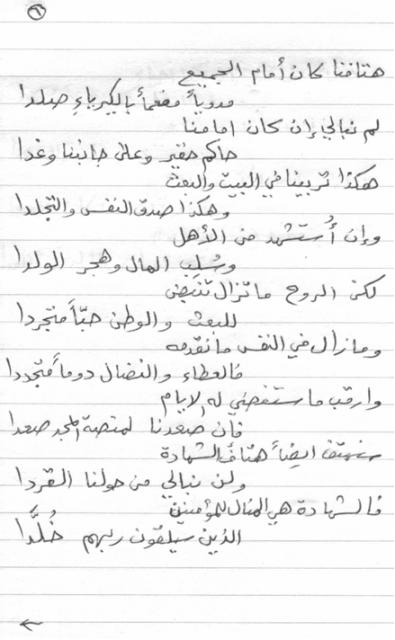 ٦
هتافنا كان أمام الجميع
مدوياً مفعماً بالكبرياءِ صلدا
لم نبالي إن كان امامنا
حاكم حقير وعلى جانبنا وغدا
هكذا تربينا في البيت والبعث
وهكذا صدق النفس والتجلدا
وإن أُستشهد من الأهل
وسُلِب المال وهجر الولدا
لكن الروح ما تزال تنبض
للبعث والوطن حبّاً متجردا
وما زال في النفس ما نقدمه
فالعطاء والنضال دوماً متجددا
وارقب ما ستفضي له الايام
فان صعدنا لمنصة المجد صعدا
سنهتف ايضاً هتاف الشهادة
ولن نبالي من حولنا القردا
فالشهادة هي المنال للمؤمنين
الذين سيلقون ربهم خُلَّدا
←